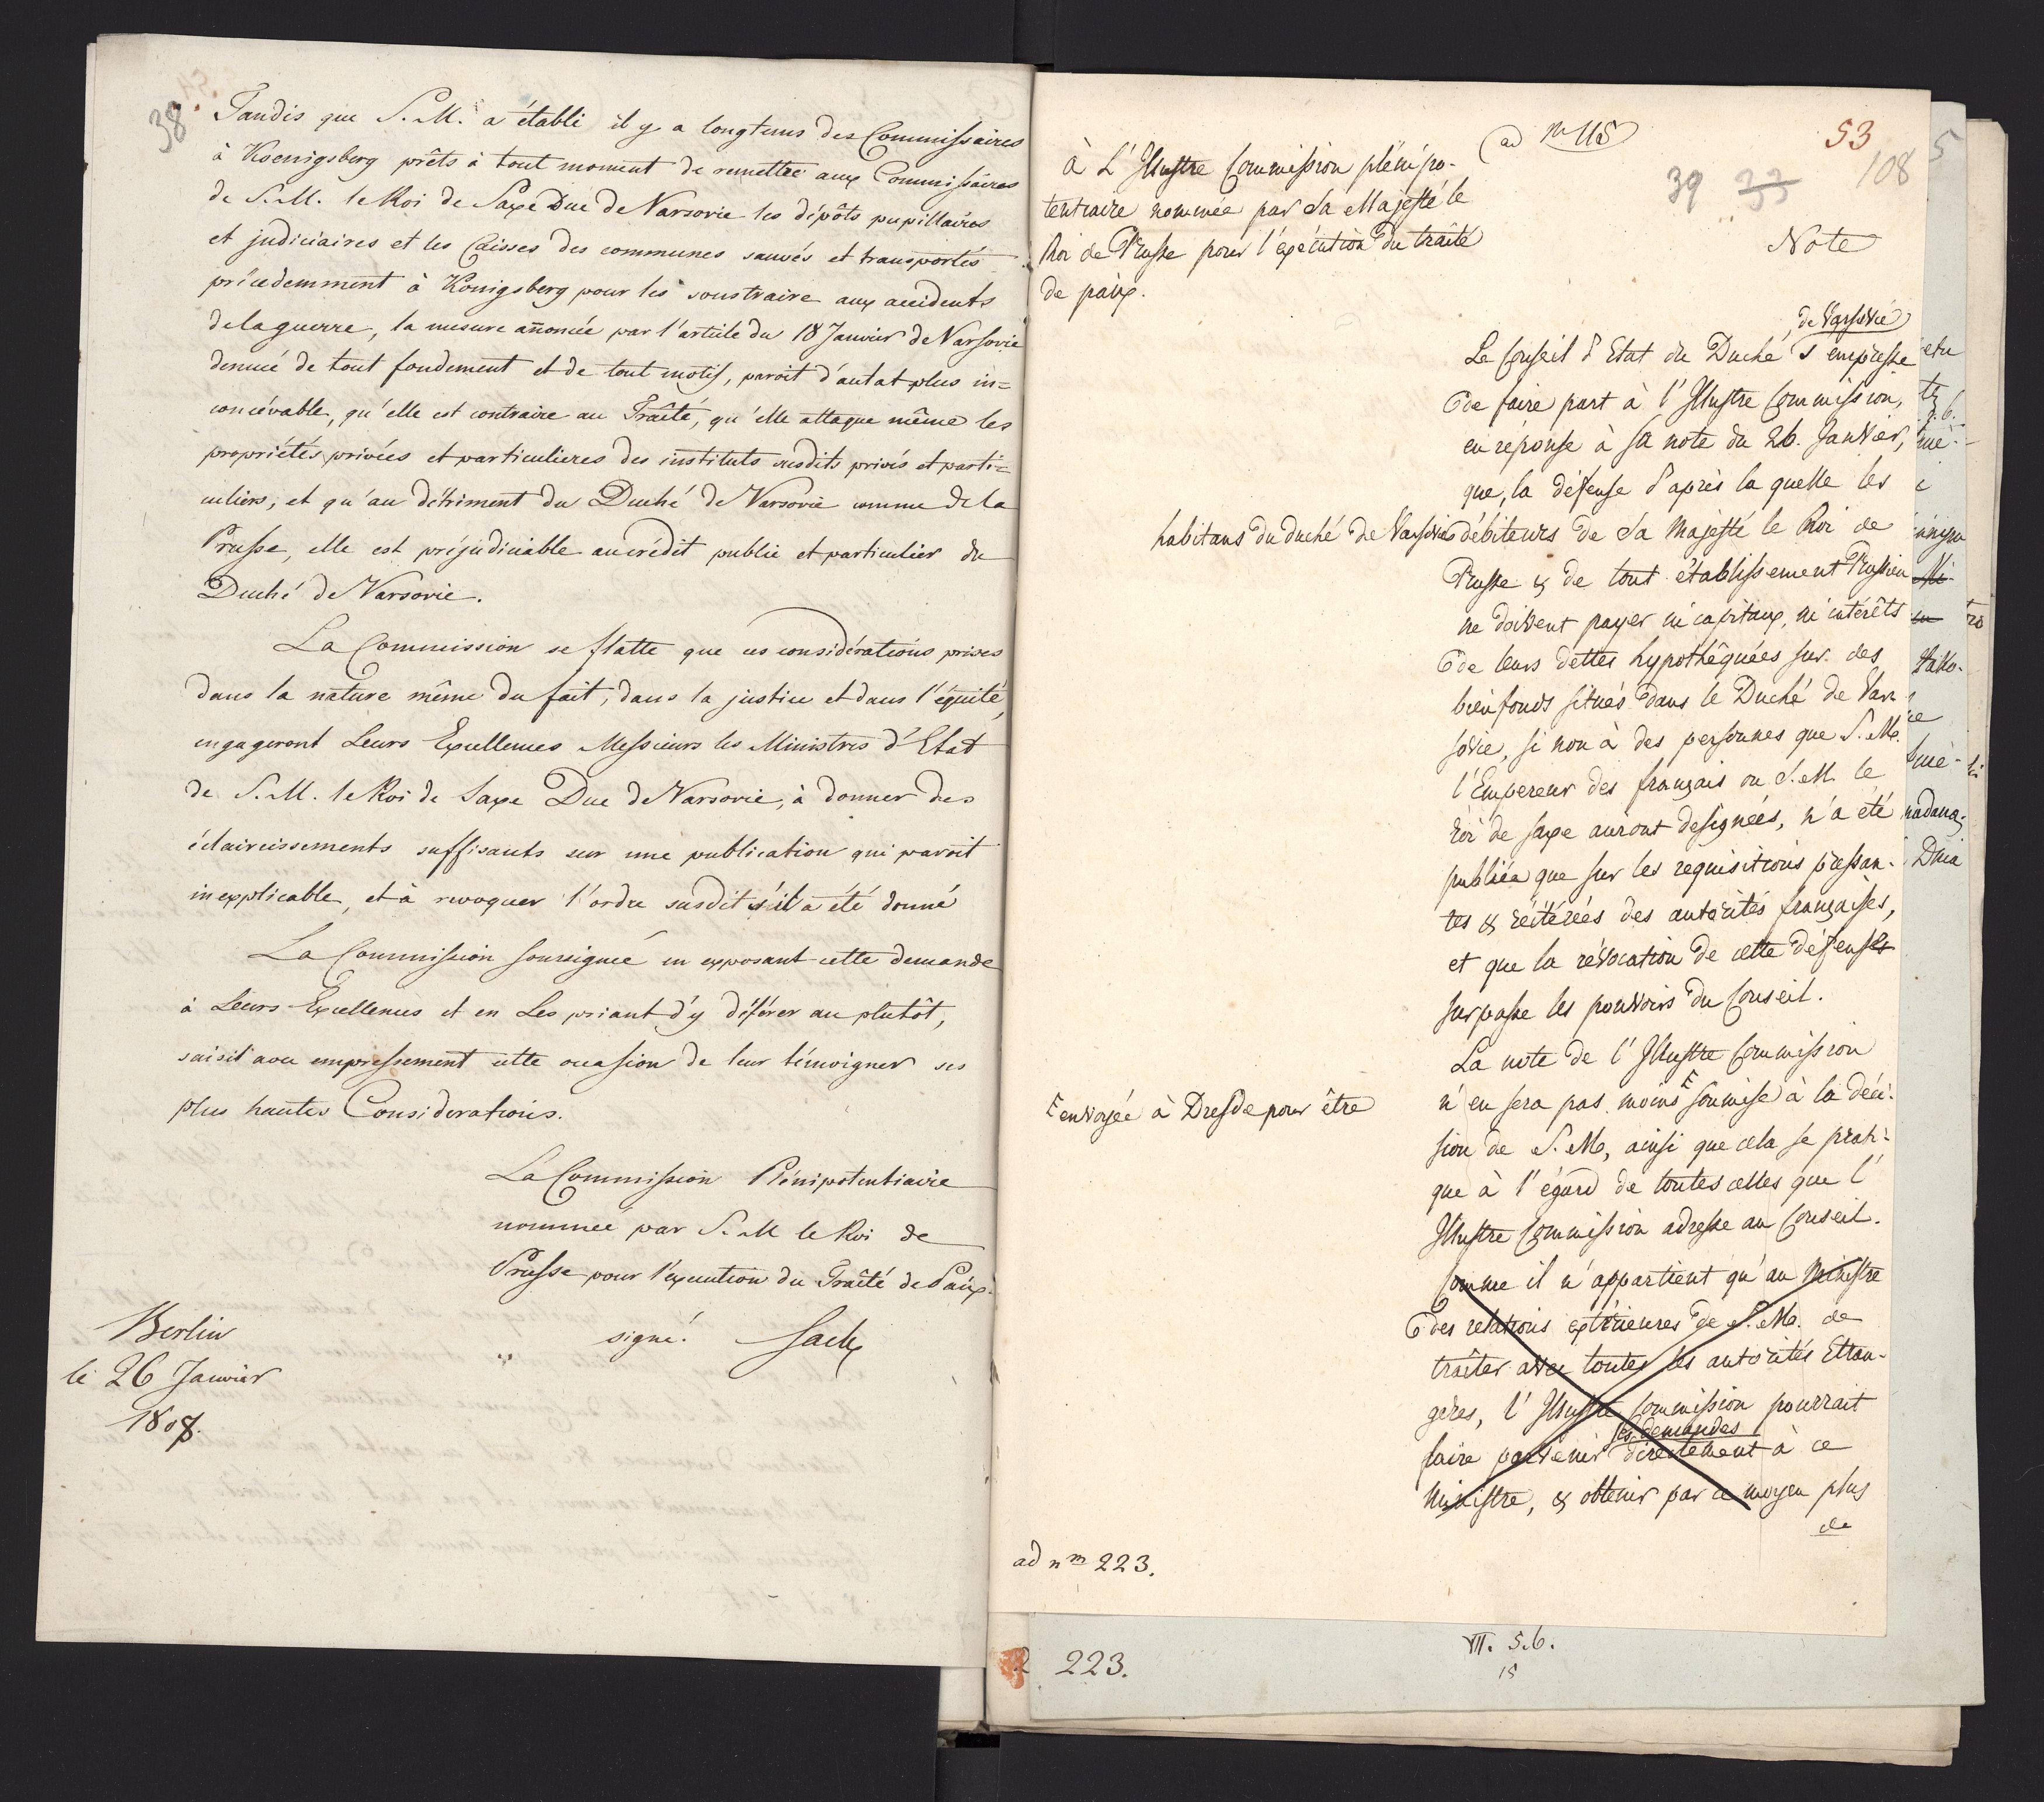 38
Tandis que S. M. a établi il y a longtems des Commissaires
à Koenigsberg prêts à tout moment de remettre aux Commissaires
de S. M. le Roi de Saxe Duc de Varsovie les dépôts pupillaires
et judiciaires et les Caisses des communes sauvés et transportés
précedemment à Konigsberg pour les soustraire aux accidents
de la guerre, la mesure añoncée par l'article du 18 Janvier de Varsovie
denuée de tout fondement et de tout motif, paroit d'autat plus in=
concévable, qu'elle est contraire au Traîté, qu'elle attaque même les
propriétés privées et particulieres des instituts susdits privés et parti=
culiers, et qu'au détriment du Duché de Varsovie comme de la
Prusse, elle est préjudiciable au crédit public et particulier du
Duché de Varsovie.
La Commission se flatte que ces considérations prises
dans la nature même du fait, dans la justice et dans l'équité,
engageront Leurs Excellences Messieurs les Ministres d'Etat
de S. M. le Roi de Saxe Duc de Varsovie, à donner des
éclaircissements suffisants sur une publication qui paroit
inexplicable, et à revoquer l'ordre susdit s'il a été donné
La Commission soussignée en exposant cette demande
à Leurs Excellences et en Les priant d'y déférer au plutôt,
saisit avec empressement cette occasion de leur témoigner ses
plus hautes Considerations.
La Commission Plénipotentiaire
nommée par S. M le Roi de
Prusse pour l'execution du Traîté de Paix.
signé. Sack
Berlin
le 26 Janvier
1808.
ad nr 115
53
39 33 108
à L'Illustre Commission plénipo-
tentiaire nommée par Sa Majesté le
Roi de Prusse pour l'exécution du traîté
de paix.
Note
de Varsovie
Le Conseil d'Etat du Duché s'empresse
de faire part à l'Illustre Commission,
en réponse à sa note du 26. Janvier,
que, la défense d'après la quelle les
habitans du duché de Varsovie débiteurs de Sa Majesté le Roi de
Prusse & de tout établissement Prussien
ne doivent payer ni capitaux, ni intérêts
de leurs dettes hypothéquées sur des
bien fonds situés dans le Duché de Var-
sovie, si non à des personnes que S. M.
l'Empereur des français ou S. M. le
roi de saxe auront designées, n'a été
publiée que sur les requisitions pressan-
tes & réitérées des autorités françaises,
et que la révocation de cette défense
surpasse les pouvoirs du Conseil.
La note de l'Illustre Commission
n'en sera pas moins soumise à la déci-
envoyée à Dresde pour être
sion de S. M, ainsi que cela se prati-
que à l'égard de toutes celles que l'
Illustre Commission adresse au Conseil.
Comme il n'appartient qu'au Ministre
des relations extérieures de S. M. de
traîter avec toutes les autorités Etran-
gères, l'Illustre Commission pourrait
ses demandes
faire parvenir directement à ce
Ministre, & obtenir par ce moyen plus
de
ad nm 223.
223.
VII. 5.6.
15